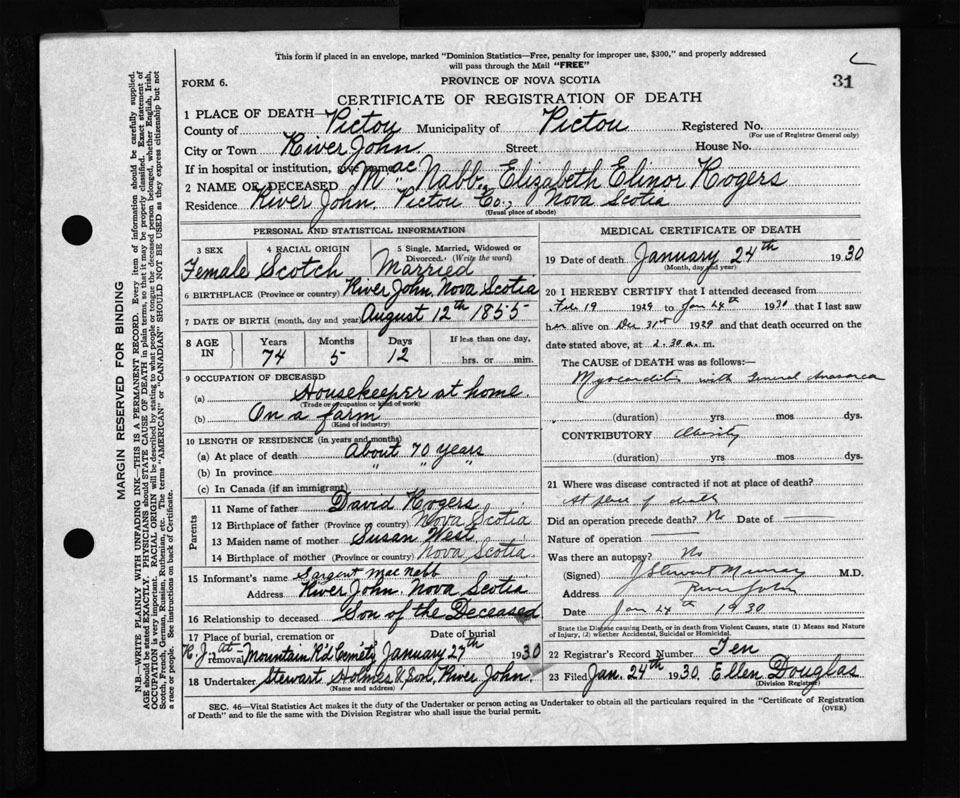 This form if placed in an envelope, marked "Dominion Statistics—Free, penalty for improper use, $300," and properly addressed
will pass through the Mail "FREE"
FORM 6.
PROVINCE OF NOVA SCOTIA
31
CERTIFICATE OF REGISTRATION OF DEATH
1 PLACE OF DEATH—
County of Pictou Municipality of Pictou Registered No.
(For use of Registrar General only)
City or Town River John Street House No.
If in hospital or institution, give name
2 NAME OF DECEASED MacNabb, Elizabeth Elinor Rogers
Residence River John, Pictou Co., Nova Scotia
(Usual place of abode)
PERSONAL AND STATISTICAL INFORMATION
3 SEX 4 RACIAL ORIGIN 5 Single, Married, Widowed or
Divorced. (Write the word)
Female Scotch Married
6 BIRTHPLACE (Province or country) River John, Nova Scotia
7 DATE OF BIRTH (month, day and year) August 12th 1855
8 AGE IN Years Months Days If less than one day,
74 5 12 hrs. or min.
9 OCCUPATION OF DECEASED
(a) Housekeeper at home.
(Trade or occupation or kind of work)
(b) On a farm
(Kind of industry)
10 LENGTH OF RESIDENCE (in years and months)
(a) At place of death About 70 years
(b) In province " " "
(c) In Canada (if an immigrant)
Parents
11 Name of father David Rogers
12 Birthplace of father (Province or country) Nova Scotia
13 Maiden name of mother Susan West
14 Birthplace of mother (Province or country) Nova Scotia.
15 Informant's name Sargent MacNabb
Address River John, Nova Scotia
16 Relationship to deceased Son of the Deceased
17 Place of burial, cremation or Date of burial
removal R.J. at Mountain R'd Cemet'y January 27th 1930
18 Undertaker Stewart Holmes & Son, River John.
(Name and address)
MEDICAL CERTIFICATE OF DEATH
19 Date of death January 24th 1930
(Month, day and year)
20 I HEREBY CERTIFY that I attended deceased from
Feb 19 1929 to Jan 24th 1930 that I last saw
her alive on Dec 31st 1929 and that death occurred on the
date stated above, at 2.30 a.m.
The CAUSE OF DEATH was as follows:—
Myocarditis with General Anasarca
(duration) yrs mos dys.
CONTRIBUTORY Obesity
(duration) yrs mos dys.
21 Where was disease contracted if not at place of death?
At place of death
Did an operation precede death? No Date of
Nature of operation
Was there an autopsy? No
(Signed) J Stewart Murray M.D.
Address River John
Date Jan 24th 1930
State the Disease causing Death, or in death from Violent Causes, state (1) Means and Nature
of Injury, (2) whether Accidental, Suicidal or Homicidal.
22 Registrar's Record Number Ten
23 Filed Jan. 24th 1930. Ellen Douglas
(Division Registrar)
SEC. 46—Vital Statistics Act makes it the duty of the Undertaker or person acting as Undertaker to obtain all the particulars required in the "Certificate of Registration
of Death" and to file the same with the Division Registrar who shall issue the burial permit.
(OVER)
MARGIN RESERVED FOR BINDING
N.B.—WRITE PLAINLY WITH UNFADING INK—THIS IS A PERMANENT RECORD. Every item of information should be carefully supplied.
AGE should be stated EXACTLY. PHYSICIANS should STATE CAUSE OF DEATH in plain terms, so that it may be properly classified. Exact statement of
OCCUPATION is very important. RACIAL ORIGIN will be described by stating to what people or tongue the deceased person belonged, whether English, Irish,
Scotch, French, German, Russian, Ruthenian, etc. The terms "AMERICAN" or "CANADIAN" SHOULD NOT BE USED as they express citizenship but not
a race or people. See instructions on back of Certificate.